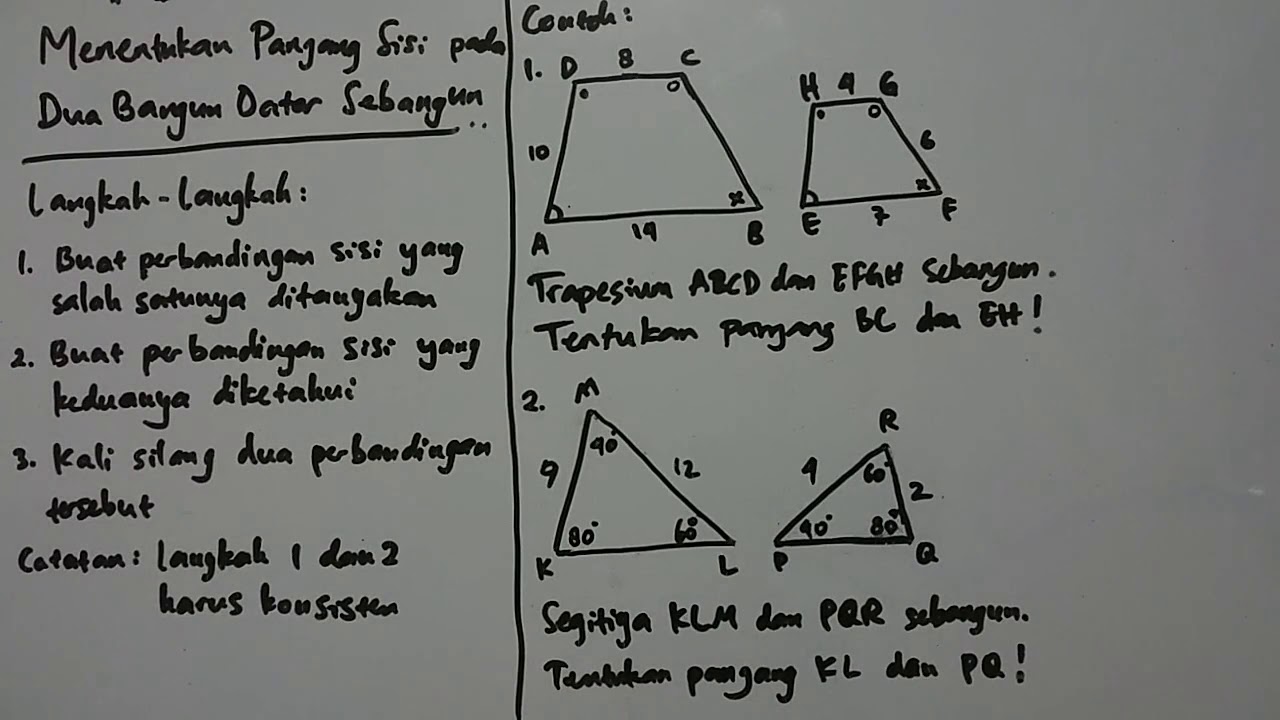 Menentukan Panjang Sisi pada
Dua Bangun Datar Sebangun
Langkah-langkah:
1. Buat perbandingan sisi yang
salah satunya ditanyakan
2. Buat perbandingan sisi yang
keduanya diketahui
3. Kali silang dua perbandingan
tersebut
Catatan: langkah 1 dan 2
harus konsisten
Contoh:
1. D 8 C
H 4 G
10
6
A 14 B
E 7 F
x
x
Trapesium ABCD dan EFGH Sebangun.
Tentukan panjang BC dan EH!
2. M
R
40°
9
12
80°
60°
K L
4
60°
2
40°
80°
P Q
Segitiga KLM dan PQR sebangun.
Tentukan panjang KL dan PQ!